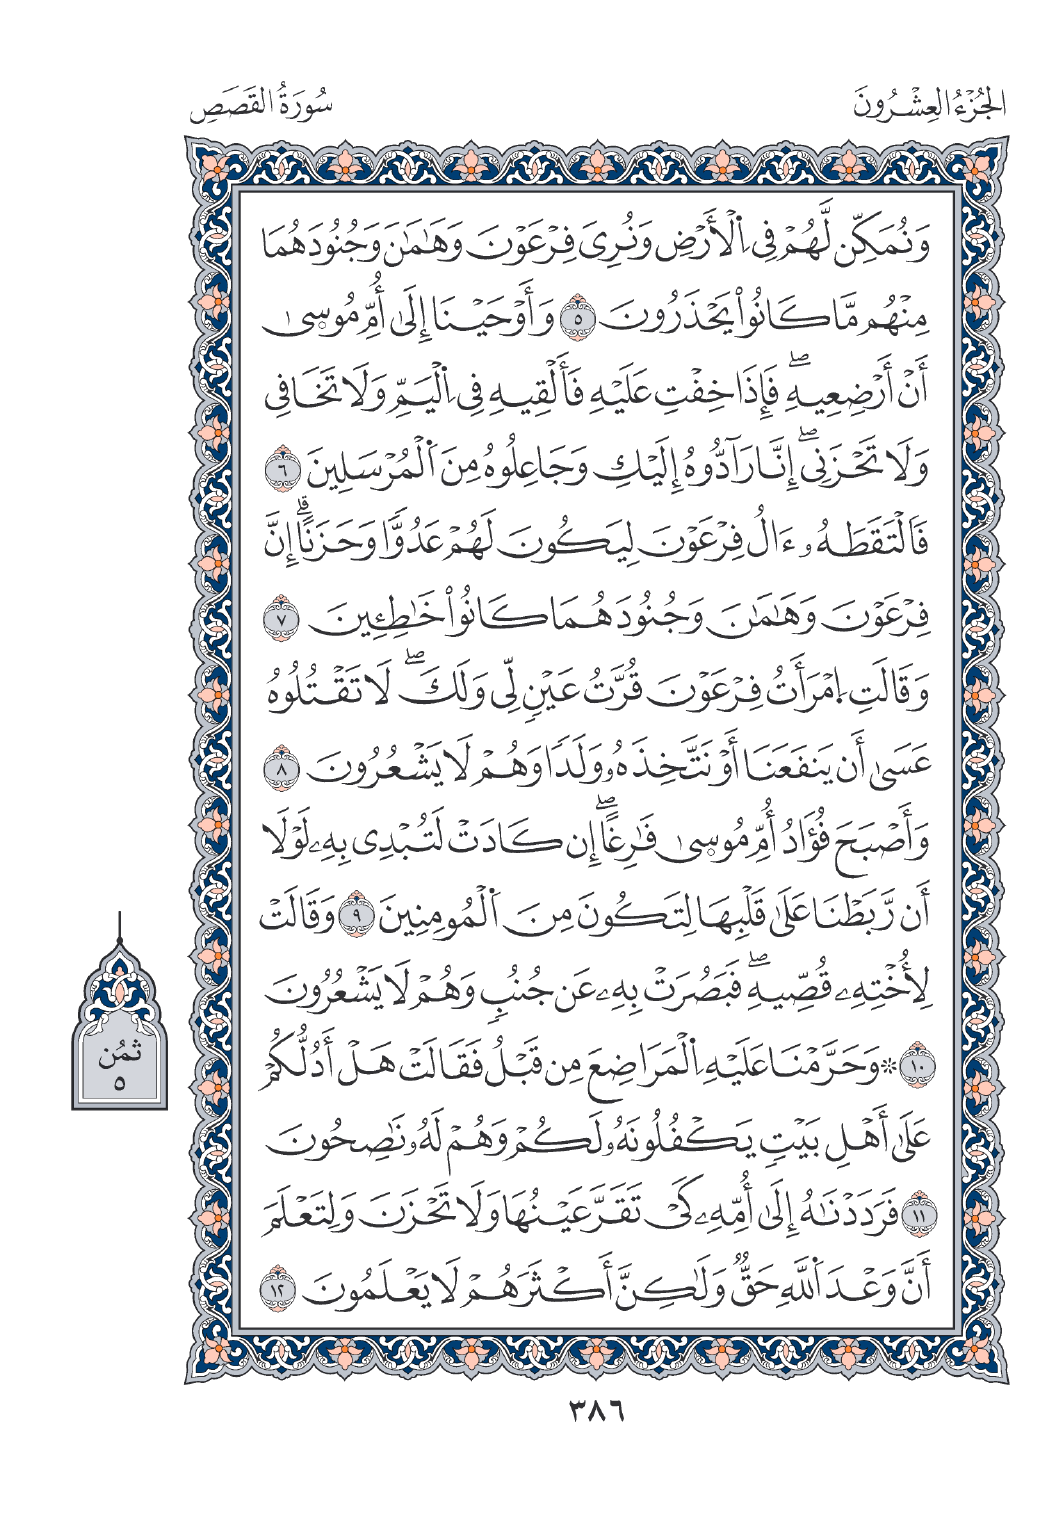 الجُزْءُ العِشْرُونَ
سُورَةُ القَصَصِ
وَنُمَكِّن لَّهُمْ فِي اِ۬لْأَرْضِ وَنُرِيَ فِرْعَوْنَ وَهَٰمَٰنَ وَجُنُودَهُمَا
مِنْهُم مَّا كَانُواْ يَحْذَرُونَ ٥ وَأَوْحَيْنَا إِلَىٰ أُمِّ مُوس۪يٰ
أَنْ أَرْضِعِيهِۖ فَإِذَا خِفْتِ عَلَيْهِ فَأَلْقِيهِ فِي اِ۬لْيَمِّ وَلَا تَخَافِي
وَلَا تَحْزَنِيۖ إِنَّا رَآدُّوهُ إِلَيْكِ وَجَاعِلُوهُ مِنَ اَ۬لْمُرْسَلِينَ ٦
فَالْتَقَطَهُۥ ءَالُ فِرْعَوْنَ لِيَكُونَ لَهُمْ عَدُوّٗا وَحَزَناًۗ إِنَّ
فِرْعَوْنَ وَهَٰمَٰنَ وَجُنُودَهُمَا كَانُواْ خَٰطِـِٕينَ ٧
وَقَالَتِ اِ۪مْرَأَتُ فِرْعَوْنَ قُرَّتُ عَيْنٖ لِّي وَلَكَۖ لَا تَقْتُلُوهُ
عَسَىٰ أَن يَنفَعَنَا أَوْ نَتَّخِذَهُۥ وَلَدٗا وَهُمْ لَا يَشْعُرُونَ ٨
وَأَصْبَحَ فُؤَادُ أُمِّ مُوس۪يٰ فَٰرِغاًۖ إِن كَادَتْ لَتُبْدِي بِهِۦ لَوْلَا
أَن رَّبَطْنَا عَلَىٰ قَلْبِهَا لِتَكُونَ مِنَ اَ۬لْمُومِنِينَ ٩ وَقَالَتْ
لِأُخْتِهِۦ قُصِّيهِۖ فَبَصُرَتْ بِهِۦ عَن جُنُبٖ وَهُمْ لَا يَشْعُرُونَ
١٠ ۞وَحَرَّمْنَا عَلَيْهِ اِ۬لْمَرَاضِعَ مِن قَبْلُ فَقَالَتْ هَلْ أَدُلُّكُمْ
عَلَىٰ أَهْلِ بَيْتٖ يَكْفُلُونَهُۥ لَكُمْ وَهُمْ لَهُۥ نَٰصِحُونَ
١١ فَرَدَدْنَٰهُ إِلَىٰ أُمِّهِۦ كَيْ تَقَرَّ عَيْنُهَا وَلَا تَحْزَنَ وَلِتَعْلَمَ
أَنَّ وَعْدَ اَ۬للَّهِ حَقّٞ وَلَٰكِنَّ أَكْثَرَهُمْ لَا يَعْلَمُونَ ١٢
ثمُن
٥
٣٨٦